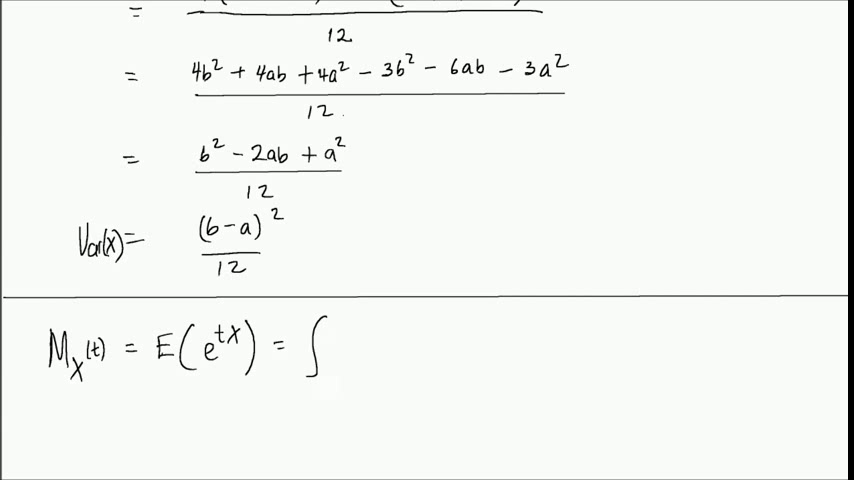 =
12
= 4b² + 4ab + 4a² - 3b² - 6ab - 3a²
12
= b² - 2ab + a²
12
Var(X) = (b-a)²
12
M_X(t) = E(e^{tX}) = ∫